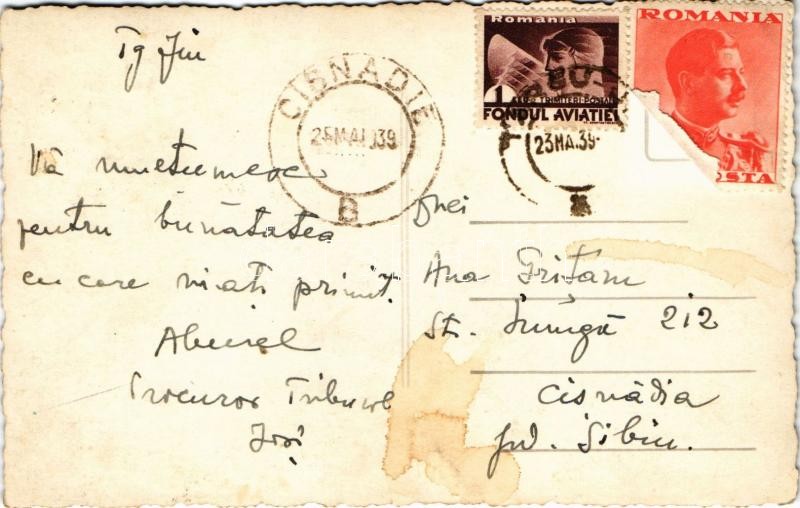 Tg Jiu
CISNADIE
25 MAI 939
B
Romania
1 LEU
TRIMITERI POSTALE
FONDUL AVIATIEI
23 MA. 39
ROMANIA
POSTA
Vă mulțumesc
pentru bunătatea
cu care m'ați primit.
Aburel
Procuror Tribunal
Dnei
Ana Grițan
St. Lungă 212
Cisnădia
jud. Sibiu.